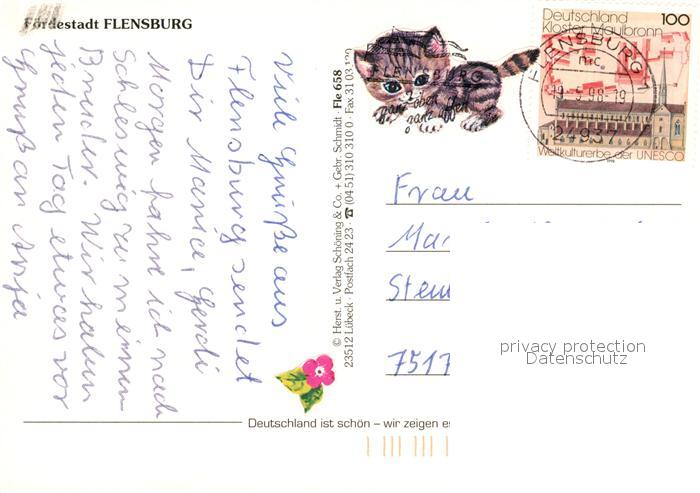 Fördestadt FLENSBURG
Viele Grüße aus
Flensburg sendet
Dir Marice, Gerdi
Morgen fahre ich nach
Schleswig zu meinem
Bruder. Wir haben
jeden Tag etwas vor
Gruß an Anja
© Herst. u. Verlag Schöning & Co. + Gebr. Schmidt · Fle 658
23512 Lübeck · Postfach 24 23 · ☎ (04 51) 310 310 0 · Fax 31 03
FLENSBURG
ganz oben
ganz offen
Deutschland
Kloster Maulbronn
100
FLENSBURG 1
mc
98-19
24937
Weltkulturerbe der UNESCO
Frau
Ma
Stein
7517
privacy protection
Datenschutz
Deutschland ist schön – wir zeigen es